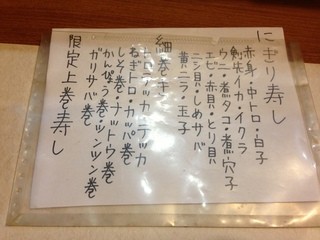 にぎり寿し
赤身・中トロ・白子
剣先イカ・イクラ
ウニ・煮タコ・煮穴子
エビ・赤貝・とり貝
ニシ貝・しめサバ
黄ニラ・玉子
細巻き
トロテッカ・テッカ
ねぎトロ・カッパ巻
しそ巻・ナットウ巻
かんぴょう巻・ツンツン巻
ガリサバ巻
限定上巻寿し